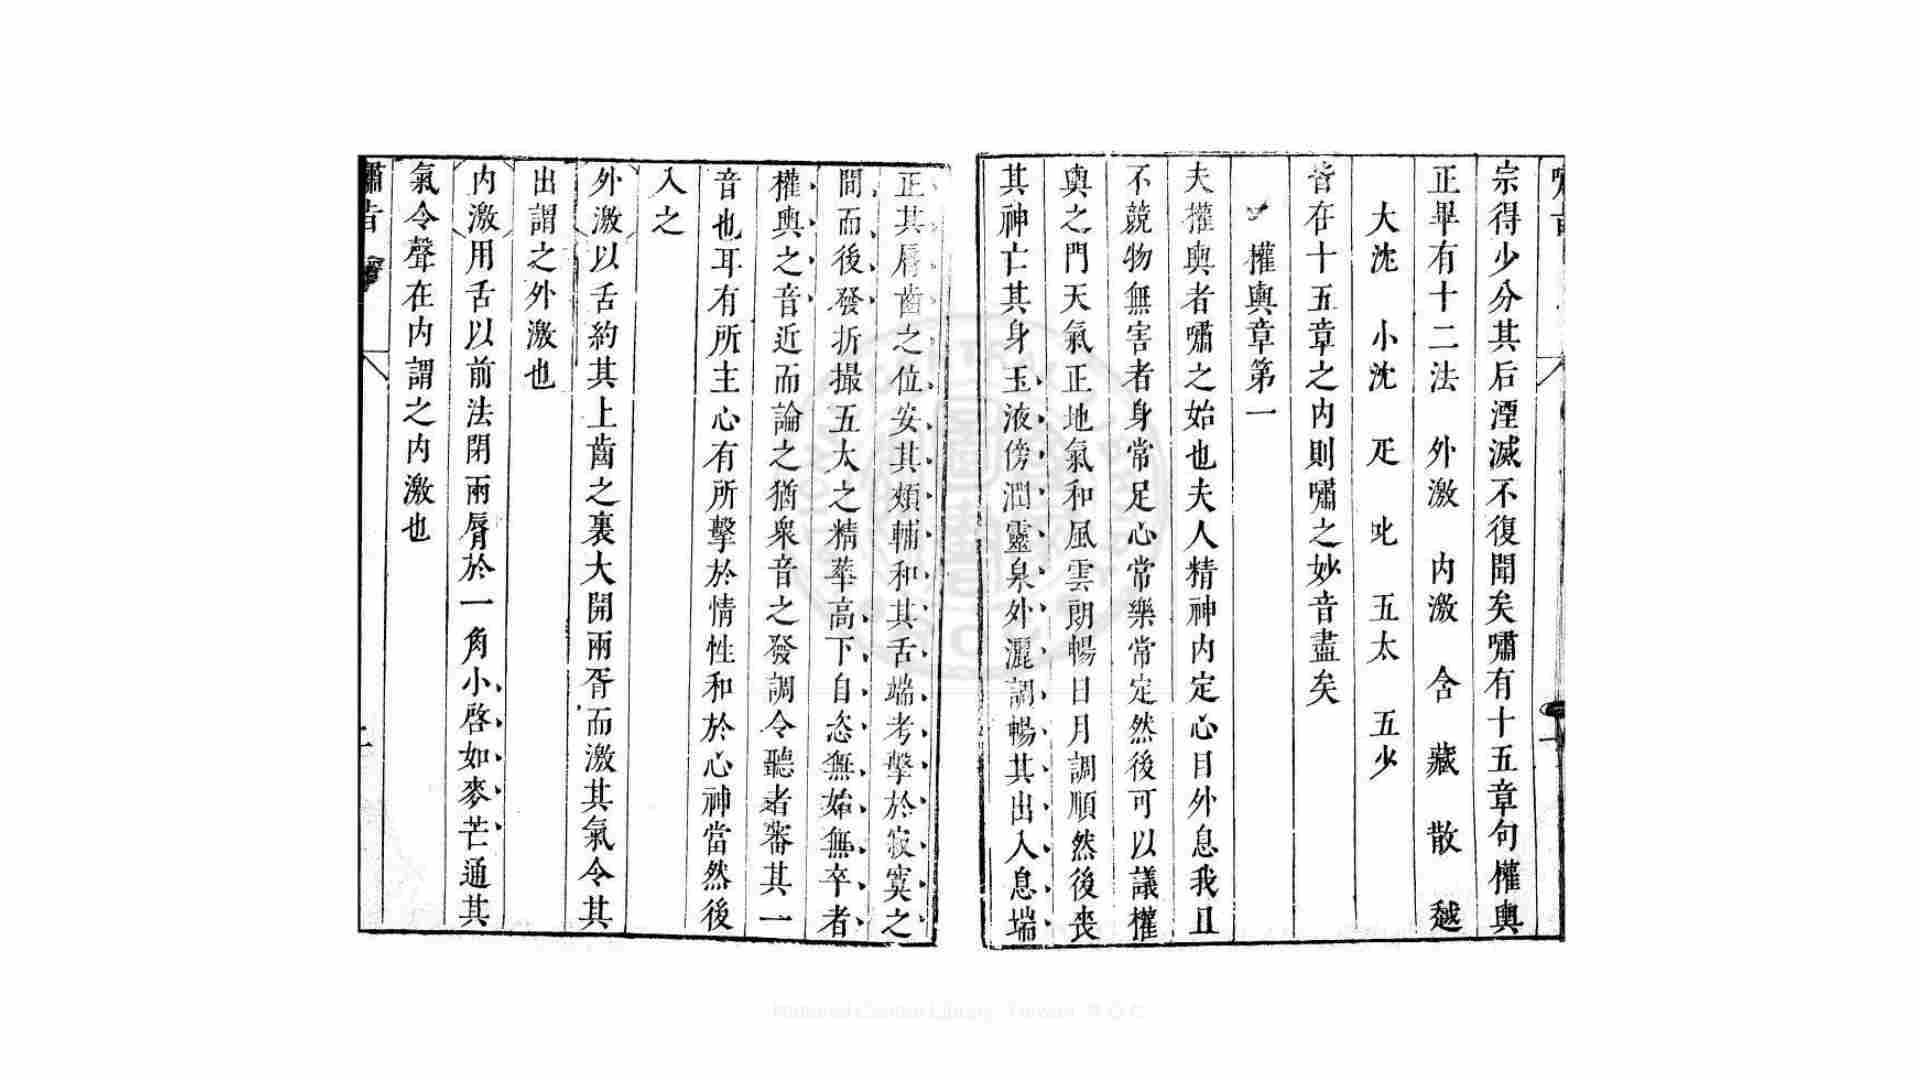 宗得少分其后湮滅不復聞矣嘯有十五章句權輿
正畢有十二法 外激 内激 含 藏 散 越
大沈 小沈 疋 叱 五太 五少
皆在十五章之内則嘯之妙音盡矣
權輿章第一
夫權輿者嘯之始也夫人精神内定心目外息我且
不競物無害者身常足心常樂常定然後可以議權
輿之門天氣正地氣和風雲朗暢日月調順然後喪
其神亡其身玉液傍潤靈泉外灑調暢其出入息端
正其脣齒之位安其頰輔和其舌端考擊於寂寞之
間而後發折撮五太之精華高下自恣無始無卒者
權輿之音近而論之猶衆音之發調令聽者審其一
音也耳有所主心有所擊於情性和於心神當然後
入之
外激以舌約其上齒之裏大開兩脣而激其氣令其
出謂之外激也
内激用舌以前法閉兩脣於一角小啓如麥芒通其
氣令聲在内謂之内激也
嘯旨